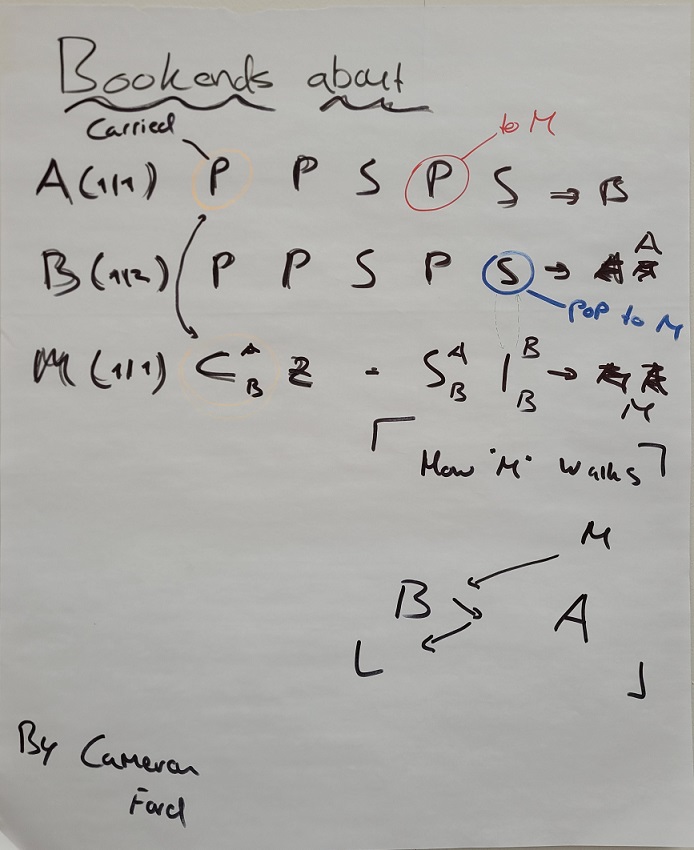 Bookends about
Carried
to M
A (1/1) P P S P S ⇒ B
B (1/2) P P S P S → A
POP to M
M (1/1) C A B Z - S A B 1 B B → M
How "M" walks
M
B A
By Cameron
Ford